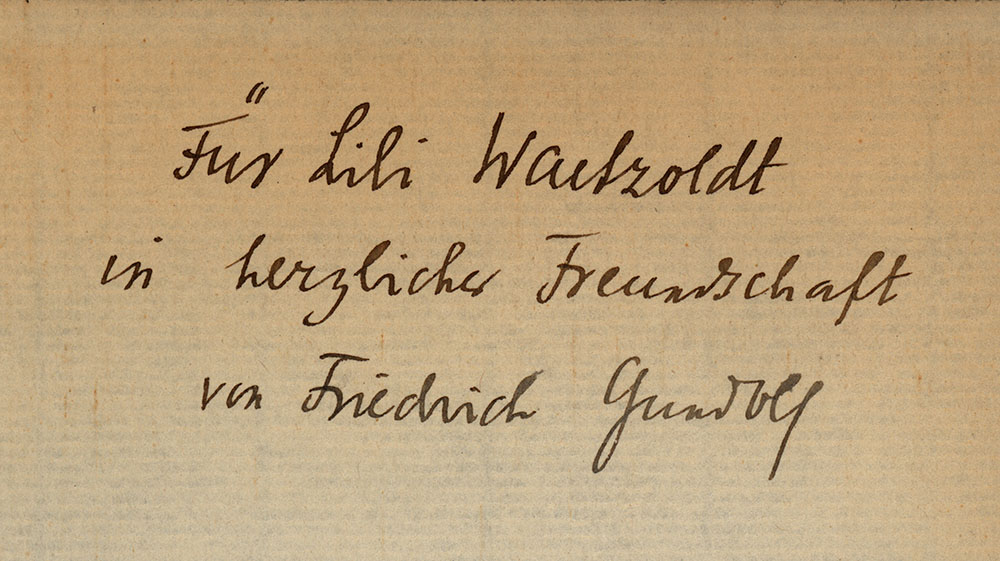 Für Lili Waetzoldt
in herzlicher Freundschaft
von Friedrich Gundolf